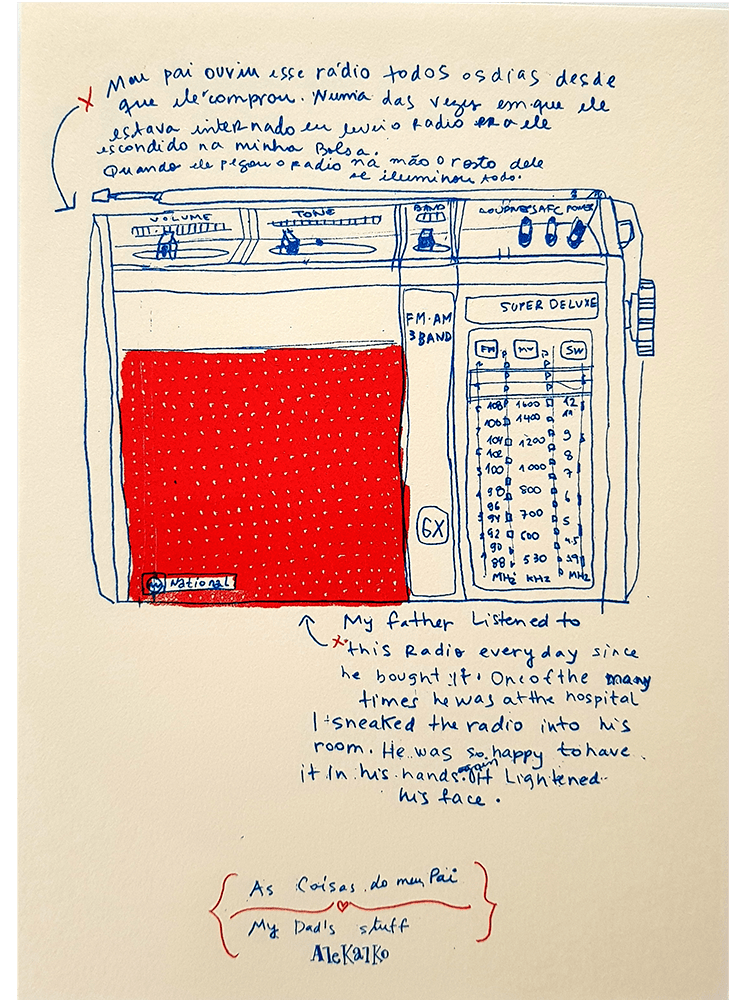 Meu pai ouviu esse rádio todos os dias desde
que ele comprou. Numa das vezes em que ele
estava internado eu levei o radio pra ele
escondido na minha Bolsa.
Quando ele pegou o radio na mão o rosto dele
se iluminou todo.
VOLUME TONE BAND LOUDNESS AFC POWER
FM·AM
3 BAND
SUPER DELUXE
FM MW SW
108 1600 12
106 1400 11
104 1200 9
102 8
100 1000 7
98 800 6
96
94 700 5
92 600 4.5
90
88 530 3.9
MHz KHz MHz
GX
National
My father Listened to
this Radio everyday since
he bought it. One of the many
times he was at the hospital
I sneaked the radio into his
room. He was so happy to have
it in his hands again. It Lightened
his face.
As Coisas do meu Pai
My Dad's stuff
AleKalko